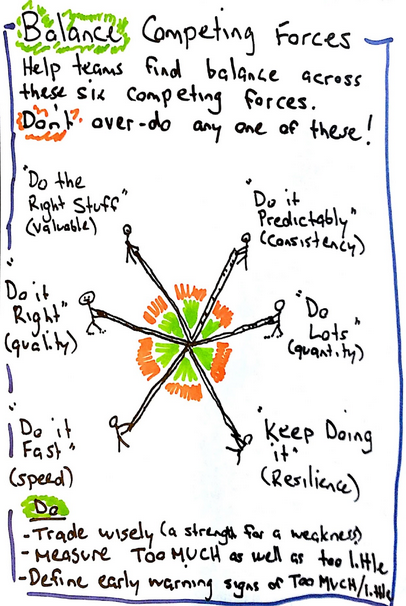 Balance Competing Forces
Help teams find balance across
these six competing forces.
Don't over-do any one of these!
"Do the
Right Stuff"
(valuable)
"Do it
Predictably"
(consistency)
"Do it
Right"
(quality)
"Do
Lots"
(quantity)
"Do it
Fast"
(speed)
"Keep Doing
it"
(Resilience)
Do
- Trade wisely (a strength for a weakness)
- MEASURE TOO MUCH as well as too little
- Define early warning signs of TOO MUCH/little